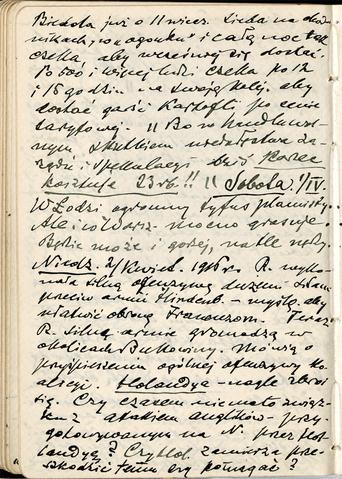 Bieda już o 11 wiecz. siedzą na chod-
nikach, w "ogonku" i całą noc tak
czeka, aby wcześniej się dostać.
Po 500 i więcej ludzi czeka po 12
i 15 godzin na swoją kolej, aby
dostać garść kartofli po cenie
taryfowej. !! Bo w handlu
skutkiem niedołęstwa za-
rządu i spekulacyi Dziś korzec
kosztuje 23 rb!! !! Sobota 1/IV.
W Łodzi ogromny tyfus plamisty.
Ale i w Warsz. mocno grasuje.
Będzie może i gorzej, na tle nędzy.
Niedz. 2/ Kwiet. 1916 r. R. wyko-
nała silną ofenzywę dużemi siłami
przeciw armii Hindenb. - myślą, aby
ułatwić obronę Francuzom. Teraz
R. silną armię gromadzą w
okolicach Bukowiny. Mówią o
przyśpieszeniu ogólnej ofenzywy ko-
alicyi. Holandya - nagle zbroi
się. Czy czasem nie ma to związ-
ku z atakiem anglików - przy-
gotowywanym na N. przez Hol-
landyę? Czy Hol. zamierza prze-
szkodzić temu czy pomagać?